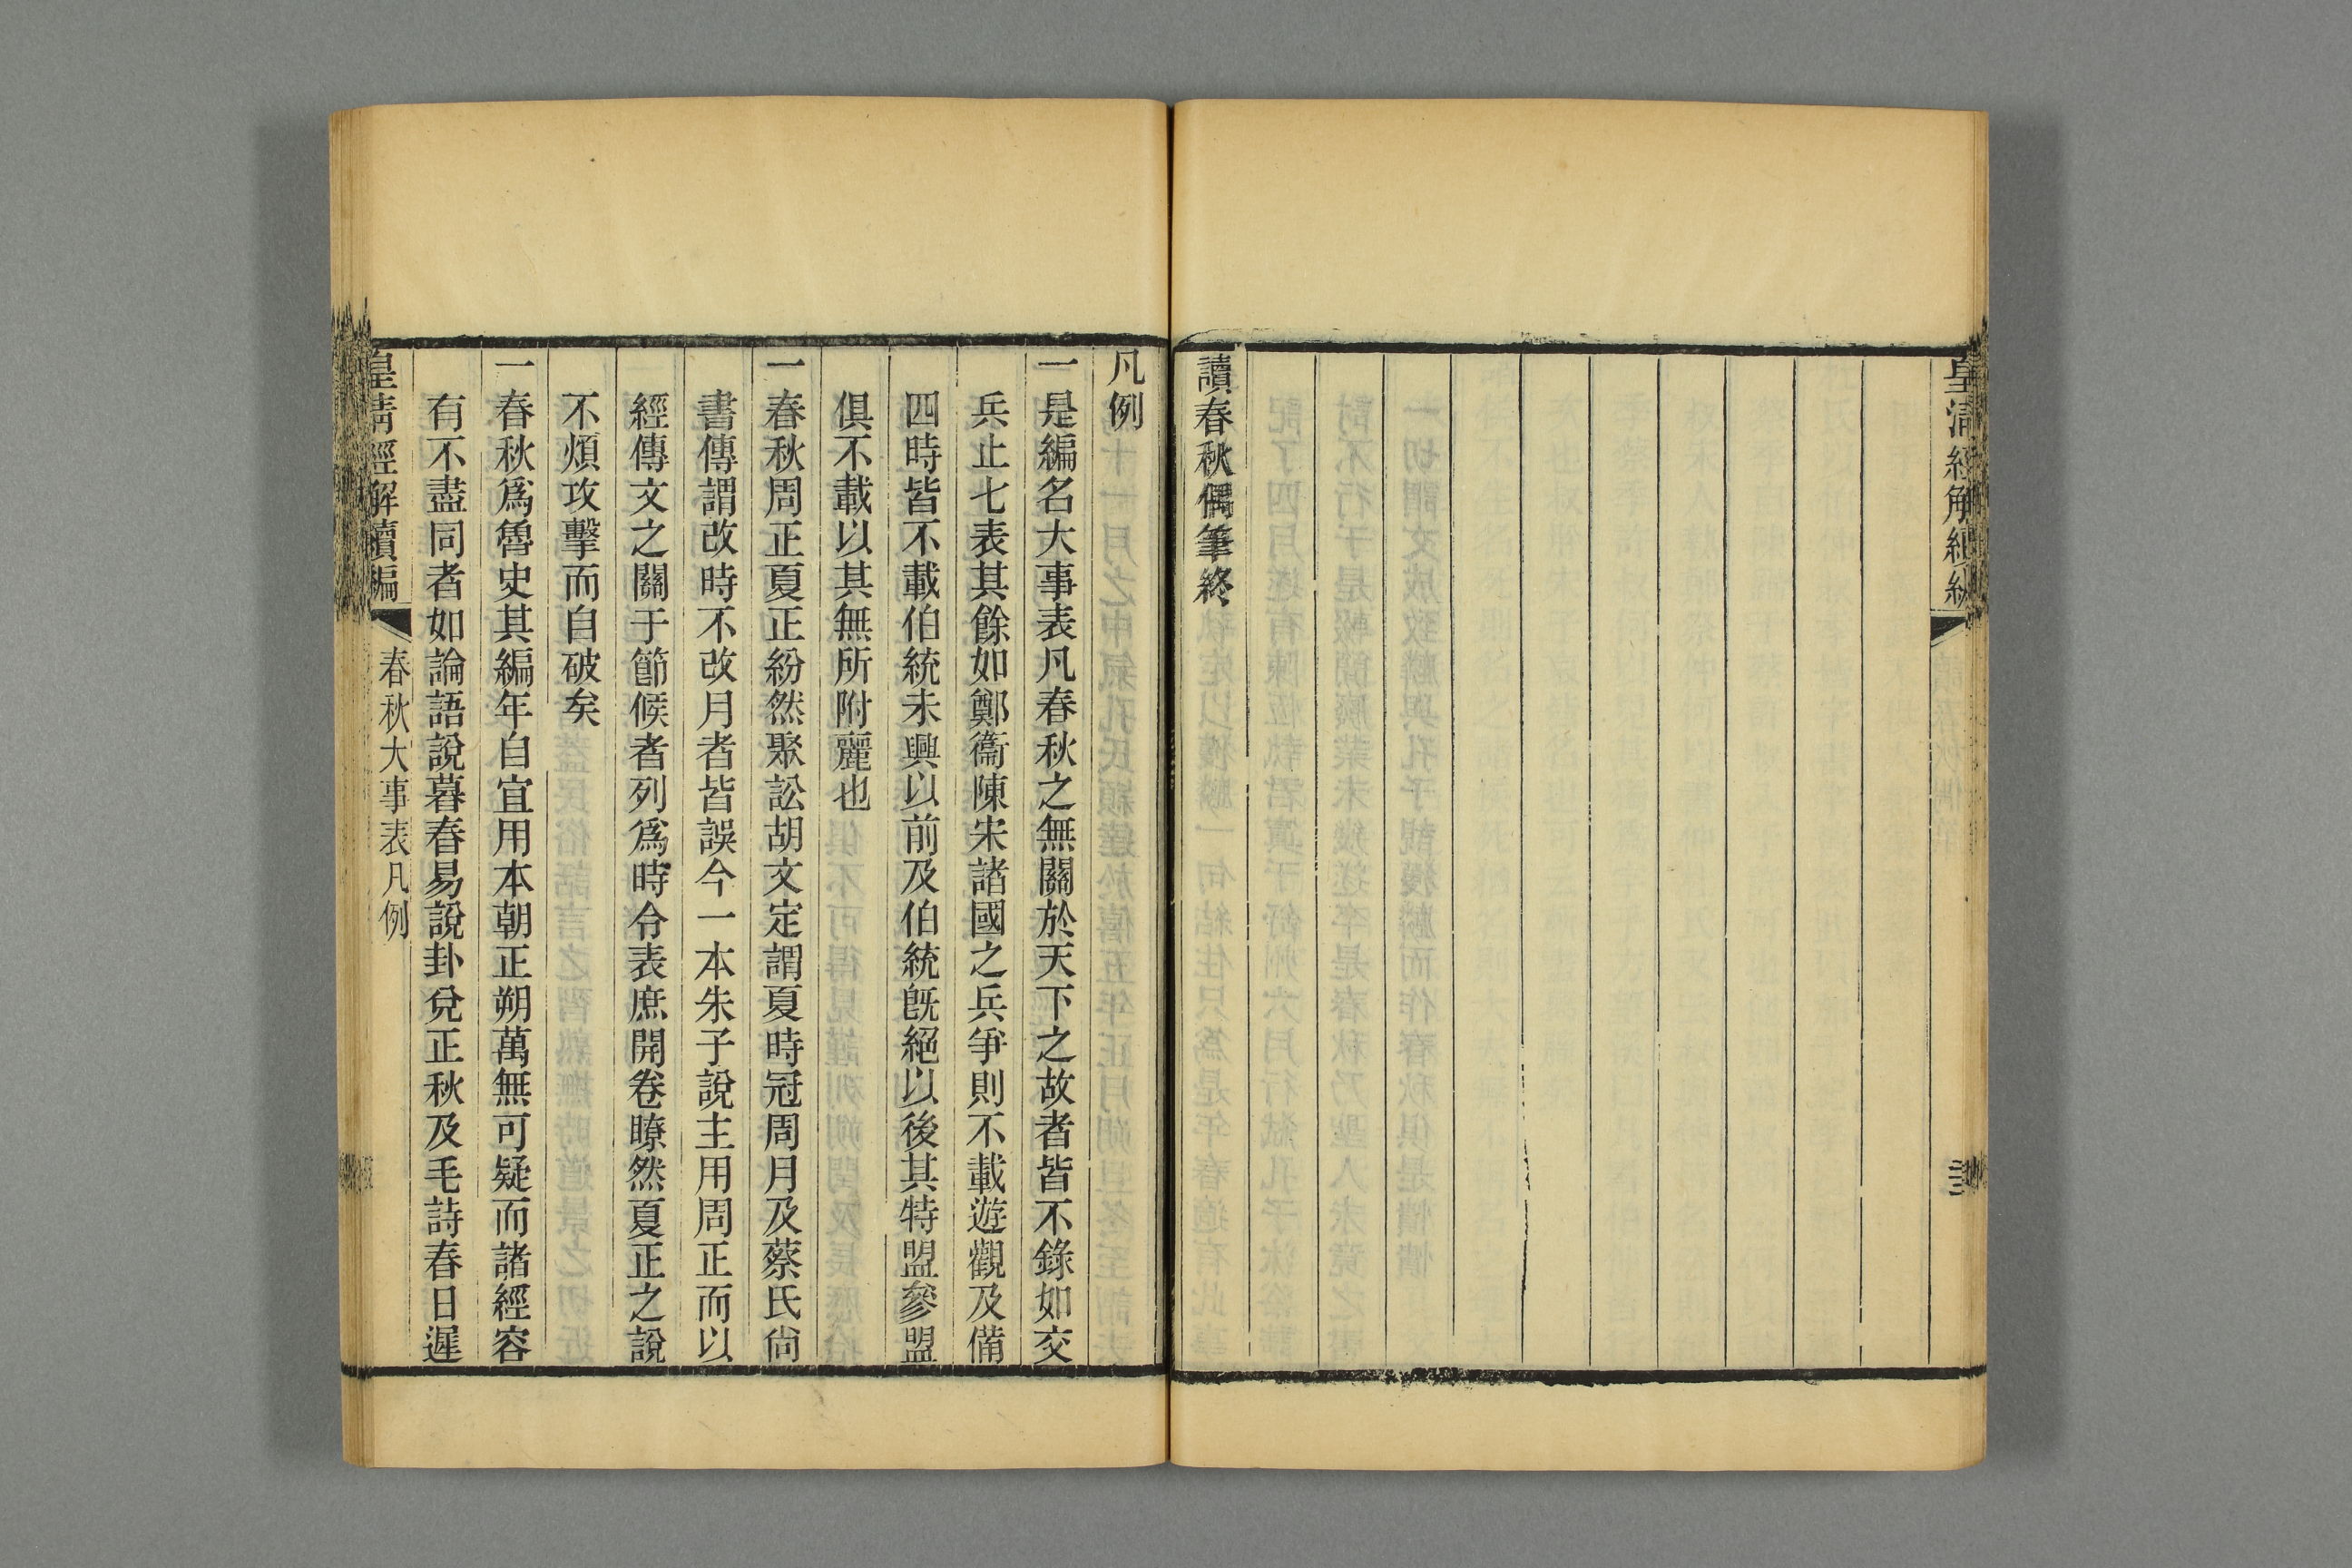 皇清經解續編
讀春秋偶筆終
凡例
一是編名大事表凡春秋之無關於天下之故者皆不錄如交
兵止七表其餘如鄭衞陳宋諸國之兵爭則不載遊觀及備
四時皆不載伯統未興以前及伯統旣絕以後其特盟參盟
俱不載以其無所附麗也
一春秋周正夏正紛然聚訟胡文定謂夏時冠周月及蔡氏尙
書傳謂改時不改月者皆誤今一本朱子說主用周正而以
經傳文之關于節候者列爲時令表庶開卷瞭然夏正之說
不煩攻擊而自破矣
一春秋爲魯史其編年自宜用本朝正朔萬無可疑而諸經容
有不盡同者如論語說暮春易說卦兌正秋及毛詩春日遲
皇清經解續編 春秋大事表凡例